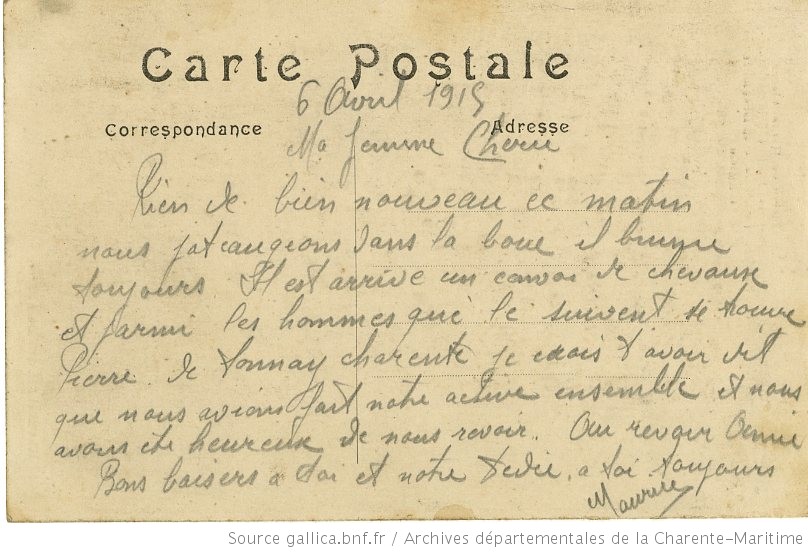 Carte Postale
6 Avril 1915
Correspondance
Adresse
Ma femme Cherie
Rien de bien nouveau ce matin
nous pataugeons dans la boue il brume
toujours Il est arrive un convoi de chevaux
et parmi les hommes qui le suivent se trouve
Pierre de Tonnay Charente je crois t avoir dit
que nous avions fait notre active ensemble et nous
avons ete heureux de nous revoir. Au revoir Amie
Bons baisers a toi et notre Dédé, a toi toujours
Maurice
Source gallica.bnf.fr / Archives départementales de la Charente-Maritime